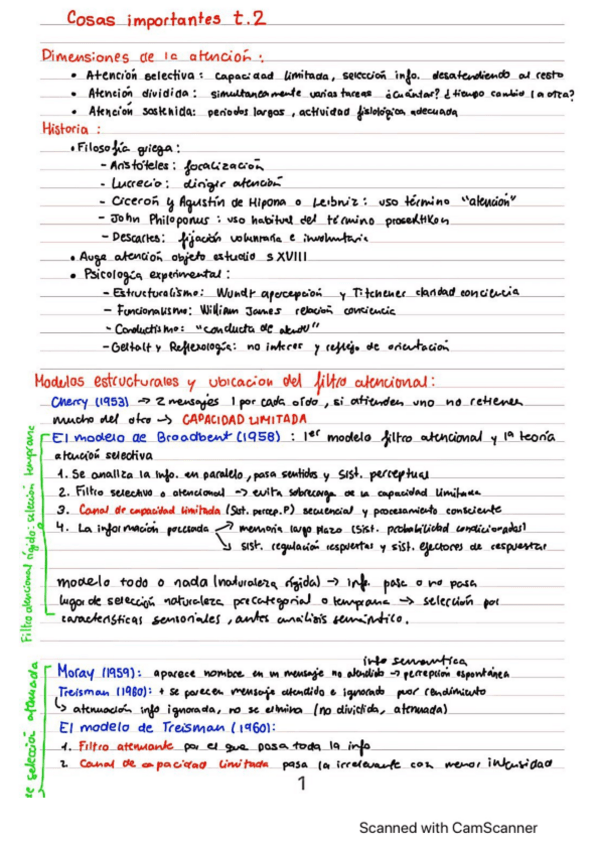 Cosas importantes t.2
Dimensiones de la atención:
• Atención selectiva: capacidad limitada, selección info. desatendiendo al resto
• Atención dividida: simultáneamente varias tareas ¿cuántas? ¿tiempo cambio la otra?
• Atención sostenida: periodos largos, actividad fisiológica adecuada
Historia:
• Filosofía griega:
- Aristóteles: focalización
- Lucrecio: dirigir atención
- Ciceron y Agustín de Hipona o Leibniz: uso término "atención"
- John Philoponus: uso habitual del término prosektikon
- Descartes: fijación voluntaria e involuntaria
• Auge atención objeto estudio s XVIII
• Psicología experimental:
- Estructuralismo: Wundt apercepción y Titchener claridad conciencia
- Funcionalismo: William James relación conciencia
- Conductismo: "conducta de atender"
- Geltalt y Reflexología: no interes y reflejo de orientación
Modelos estructurales y ubicacion del filtro atencional:
Cherry (1953) → 2 mensajes 1 por cada oído, si atienden uno no retienen
mucho del otro → CAPACIDAD LIMITADA
El modelo de Broadbent (1958): 1er modelo filtro atencional y 1ª teoría
atención selectiva
1. Se analiza la info. en paralelo, pasa sentidos y sist. perceptual
2. Filtro selectivo o atencional → evita sobrecarga de la capacidad limitada
3. Canal de capacidad limitada (Sist. percep. P) secuencial y procesamiento consciente
4. La información procesada → memoria largo plazo (sist. probabilidad condicionadas)
↘ sist. regulación respuestas y sist. efectores de respuestas
modelo todo o nada (naturaleza rígida) → inf. pasa o no pasa
lugar de selección naturaleza precategorial o temprana → selección por
características sensoriales, antes análisis semántico.
Filtro atencional rígido: selección temprana
info semantica
Moray (1959): aparece nombre en un mensaje no atendido → percepción espontánea
Treisman (1960): + se parecen mensaje atendido e ignorado peor rendimiento
↳ atenuación info ignorada, no se elimina (no dividida, atenuada)
El modelo de Treisman (1960):
1. Filtro atenuante por el que pasa toda la info
2. Canal de capacidad limitada pasa la irrelevante con menor intensidad
se selección atenuada
1
Scanned with CamScanner